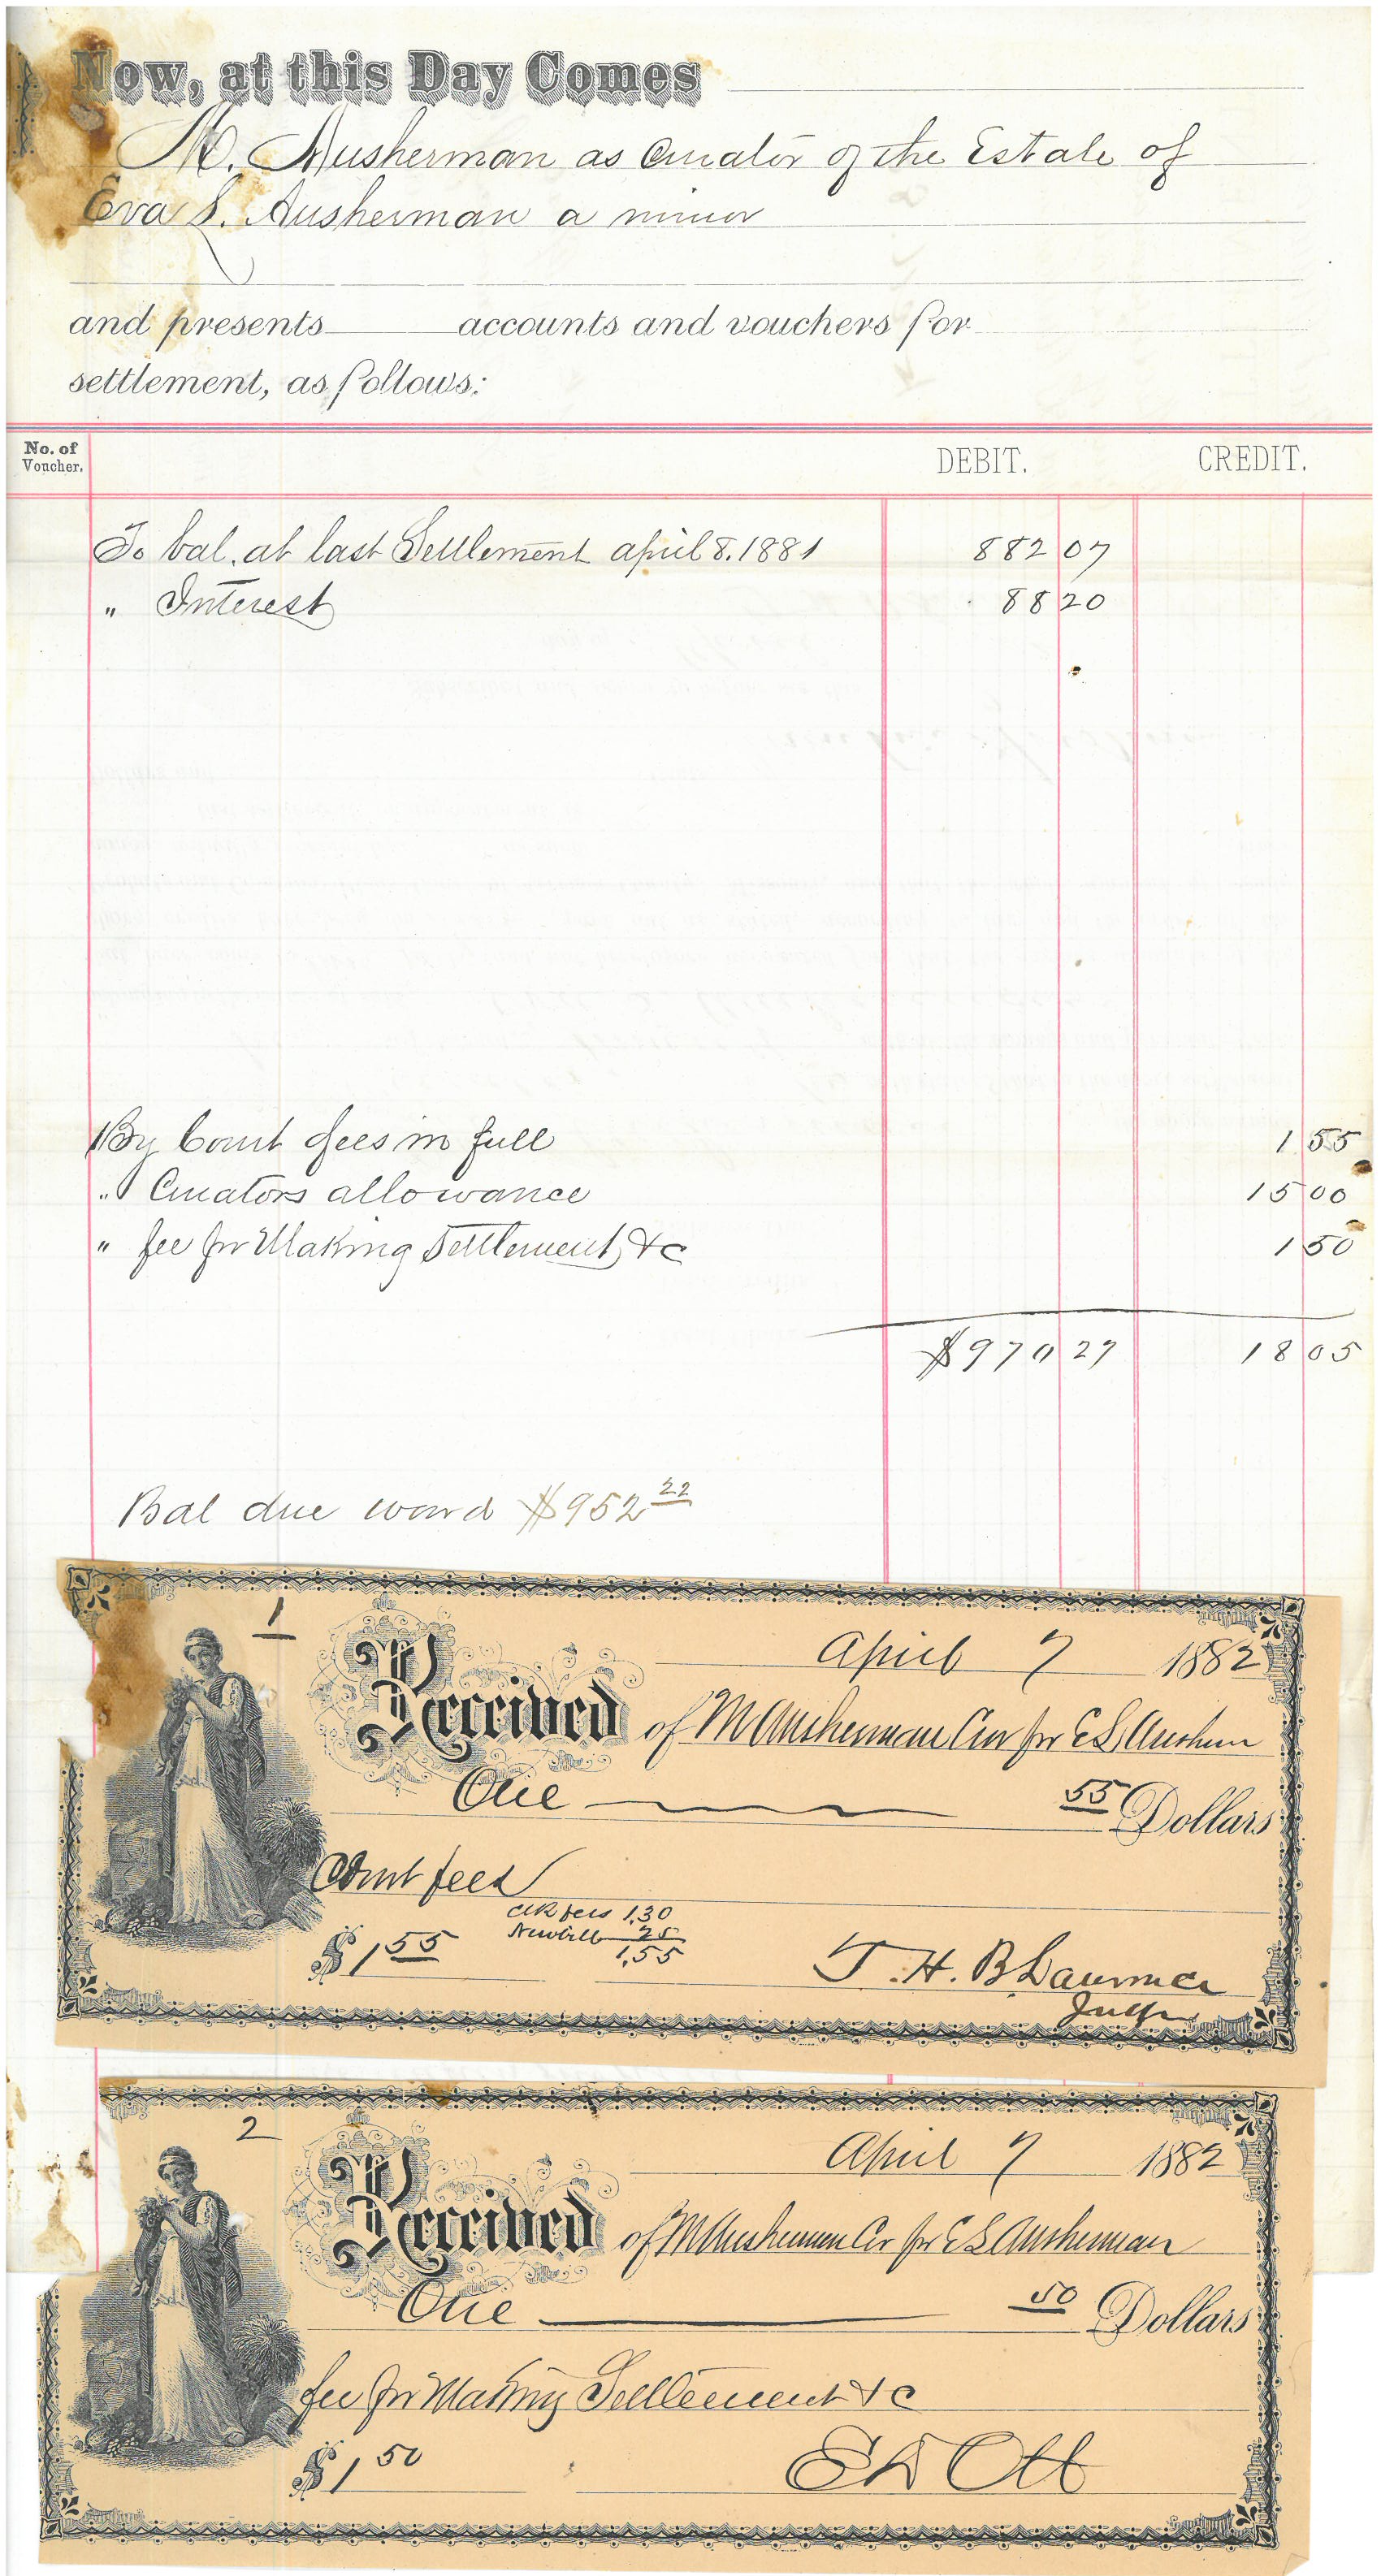 Now, at this Day Comes
M. Ausherman as Curator of the Estate of
Eva S. Ausherman a minor
and presents accounts and vouchers for
settlement, as follows:
No. of Voucher. DEBIT. CREDIT.
To bal. at last Settlement april 8. 1881 882 07
" Interest 88 20
By Court fees in full 1 55
" Curators allowance 15 00
" fee for Making Settlement &c 1 50
$970 27 18 05
Bal due ward $952 22
1
April 7 1882
Received of M Ausherman Cur for E S Aushern
One 55 Dollars
Court fees
Clk fees 1.30
25
1.55
$1 55
T. H. B.
Judge
2
April 7 1882
Received of M Ausherman Cr for E S Ausherman
One 50 Dollars
fee for Making Settlement &c
$1 50
E D Ott